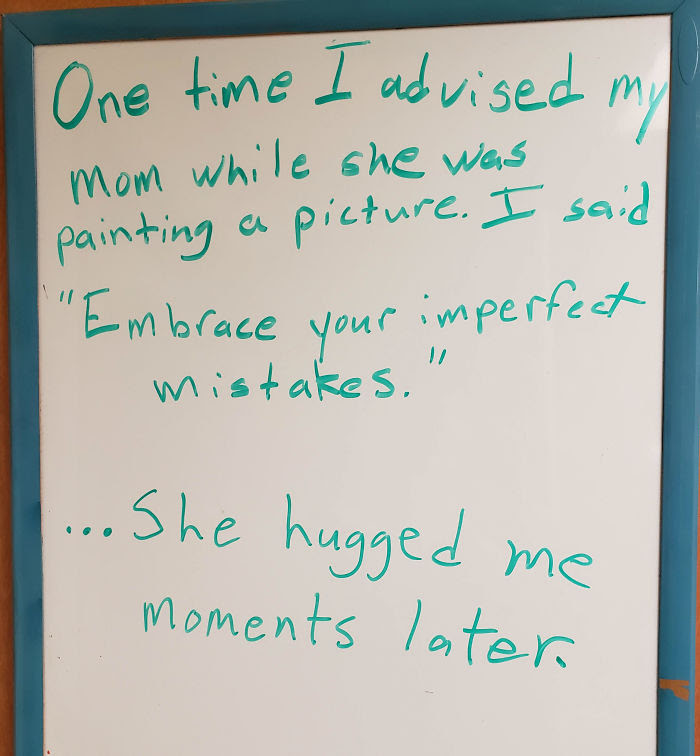 One time I advised my
mom while she was
painting a picture. I said
"Embrace your imperfect
mistakes."
...She hugged me
moments later.